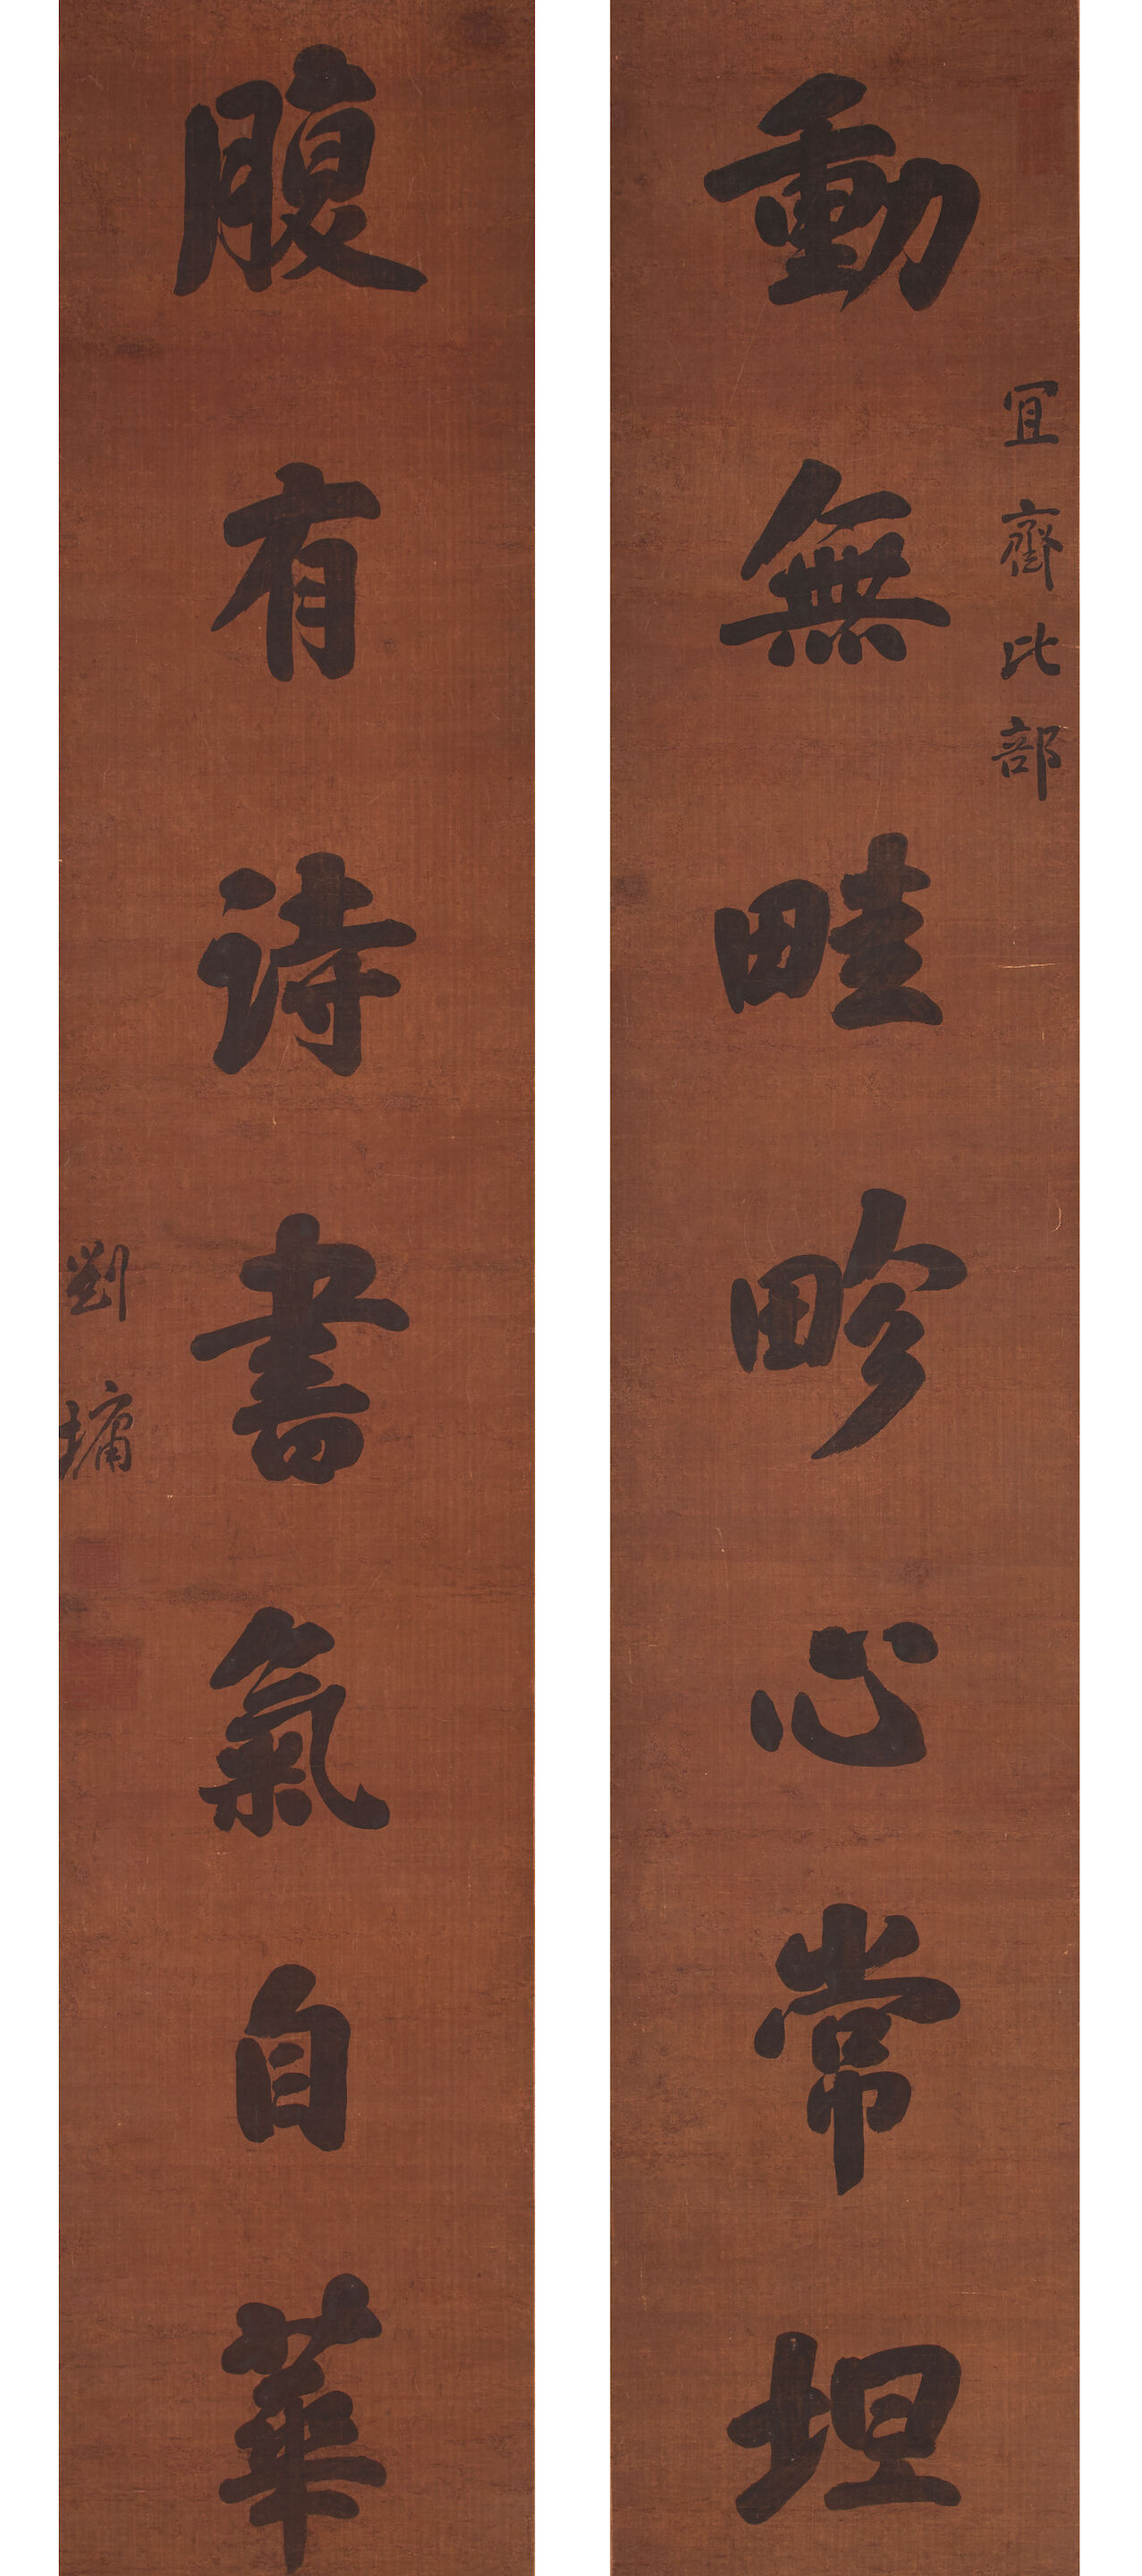 冝齋比部
動無畦畛心常坦
腹有詩書氣自華
劉墉